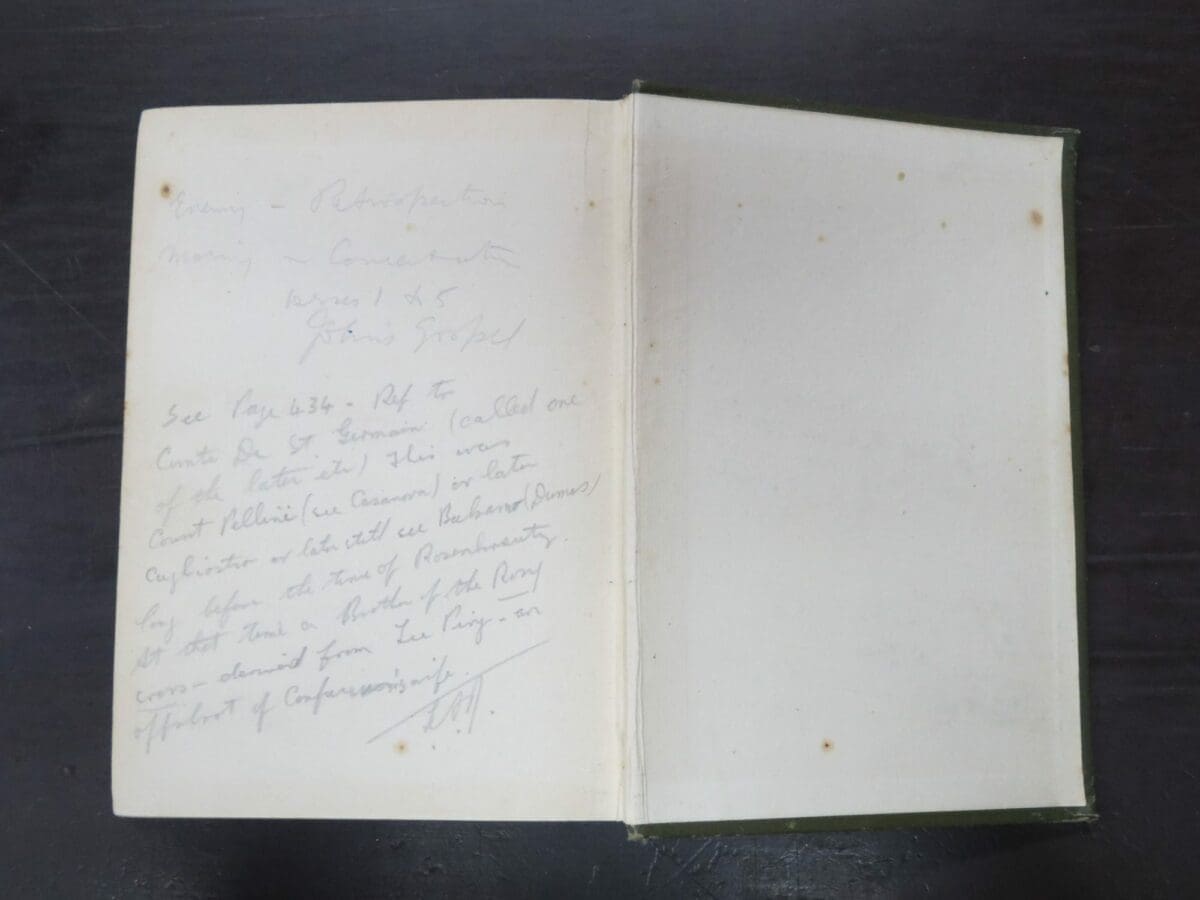 Evening – Retrospection
Morning – Concentration
verses 1 & 5
John's Gospel
See Page 434 – Ref to
Comte De St Germain (called one
of the later etc) This was
Count Pellini (see Casanova) or later
Cagliostro or later still see Balsamo (Dumas)
long before the time of Rosenkreutz.
At that time a Brother of the Rosy
cross – derived from – an
offshoot of wife.